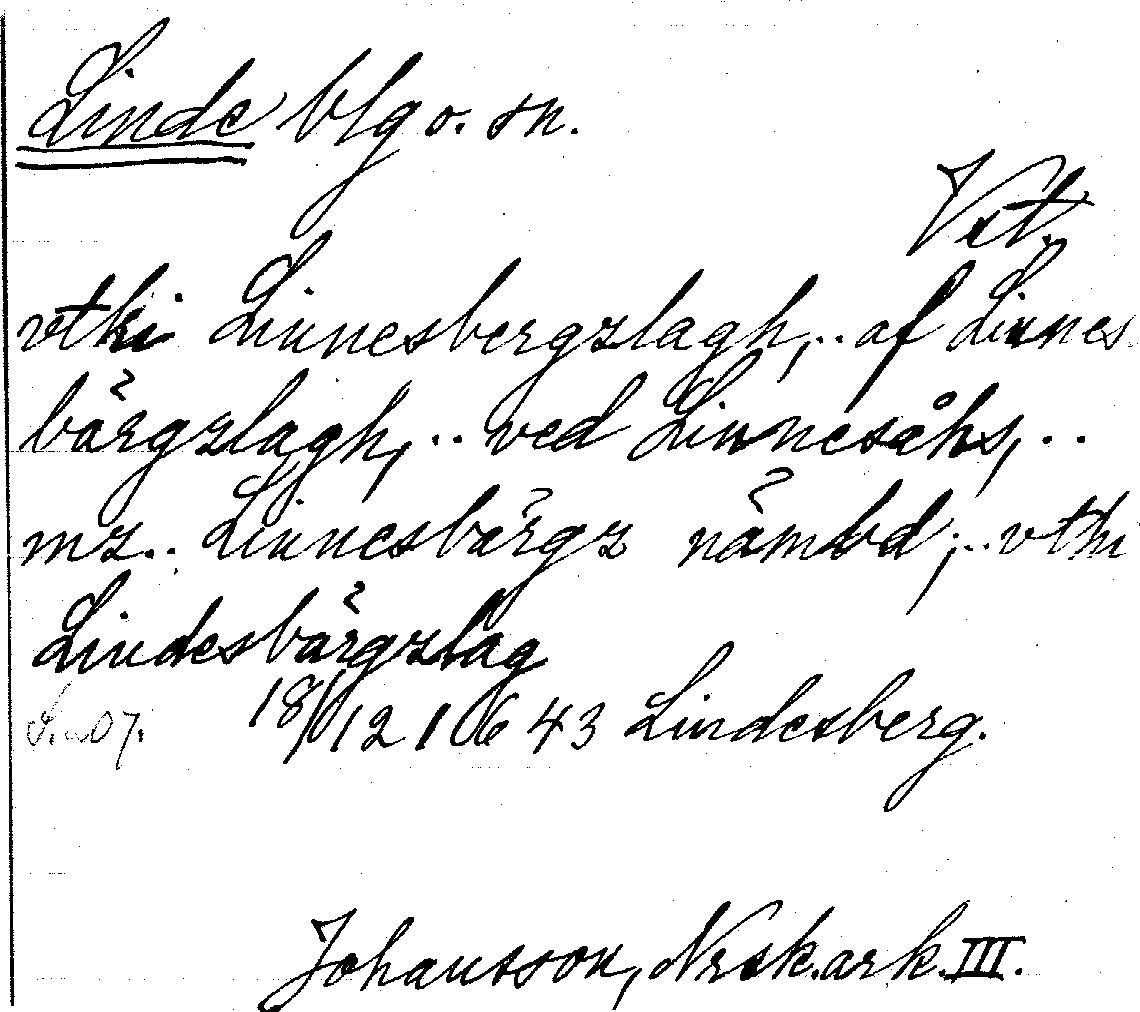 Linde blg o. sn.
Vstm.
vthi Linnesbergzlagh,.. af Linnes
bärgzlagh,.. ved Linnesåhs,..
mz.. Linnesbärgz nämbd;.. vthi
Lindesbärgzlag
S. 207. 18/12 1643 Lindesberg.
Johansson, Nrsk. ark. III.